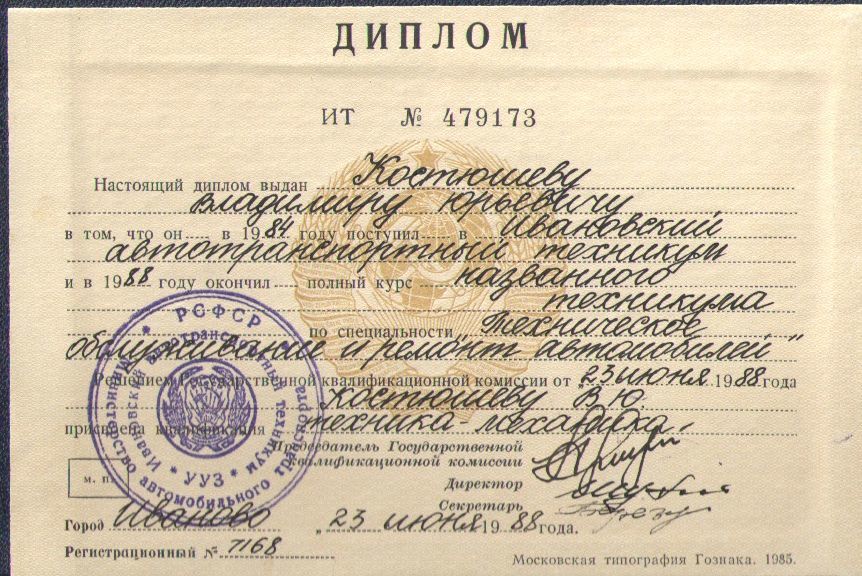 ДИПЛОМ
ИТ № 479173
Настоящий диплом выдан Костюшеву
Владимиру Юрьевичу
в том, что он в 1984 году поступил в Ивановский
автотранспортный техникум
и в 1988 году окончил полный курс названного
техникума
по специальности "Техническое
обслуживание и ремонт автомобилей"
Решением Государственной квалификационной комиссии от 23 июня 1988 года
Костюшеву В.Ю.
присвоена квалификация техника-механика.
Председатель Государственной
квалификационной комиссии
Директор
Секретарь
м. п.
Город Иваново „ 23 июня 1988 года.
Регистрационный № 7168
Московская типография Гознака. 1985.
РСФСР * Министерство автомобильного транспорта *
Ивановский автотранспортный техникум * УУЗ *